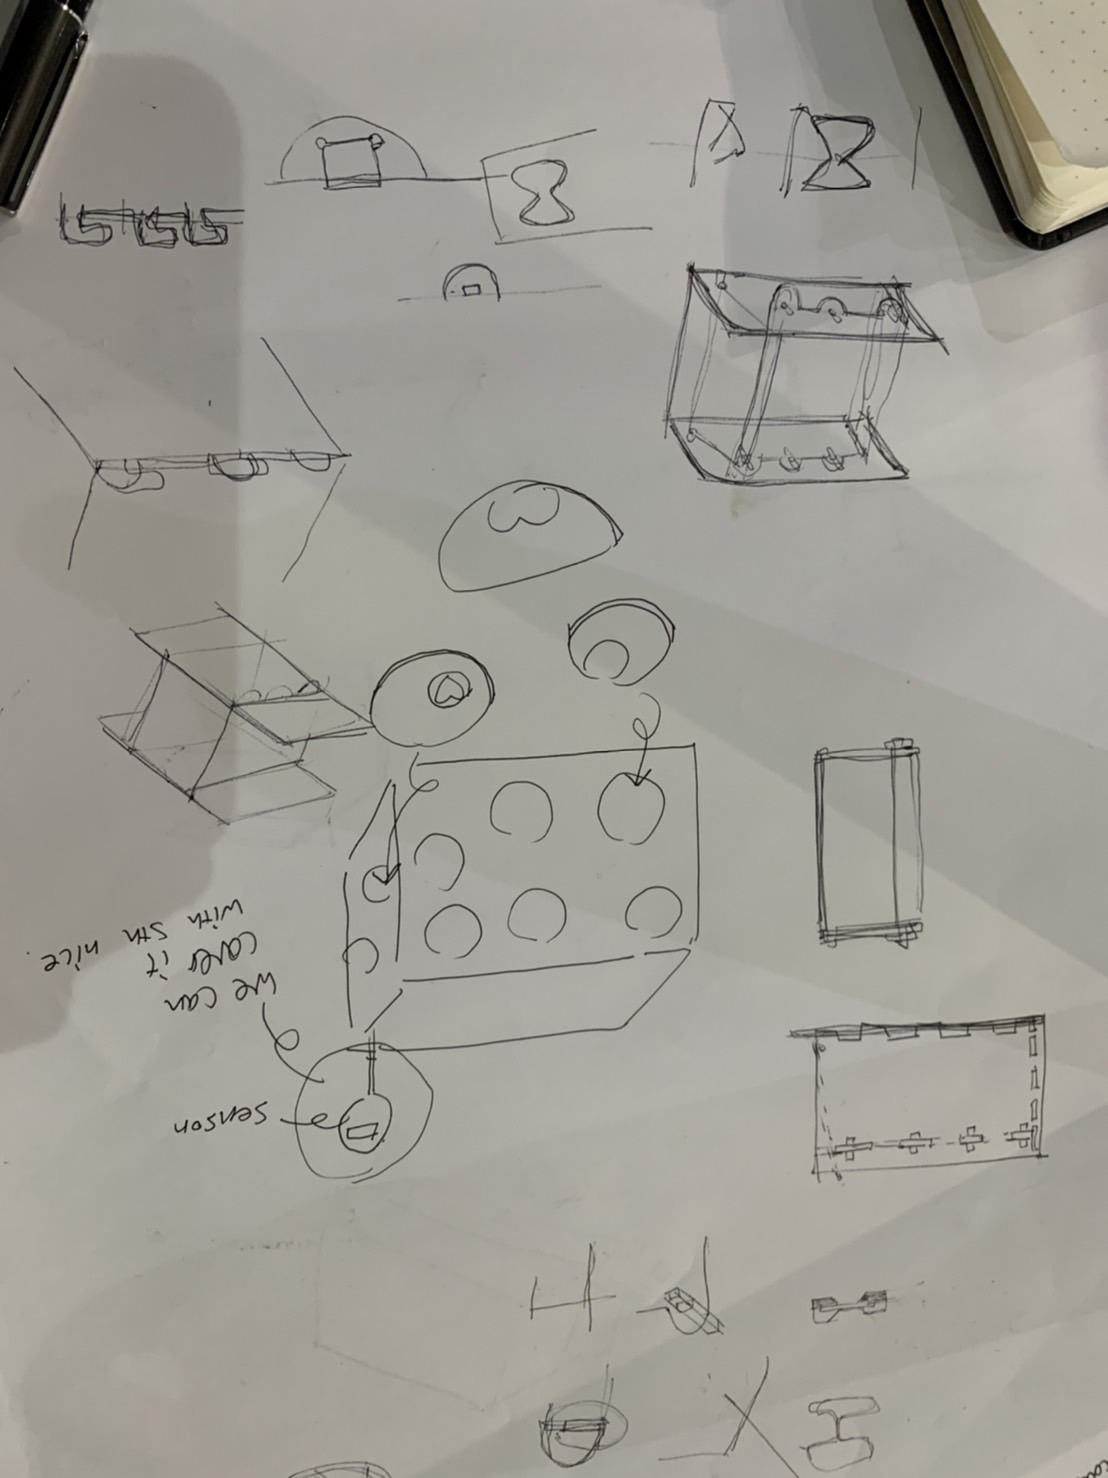 we can
cover it
with sth nice.
sensor